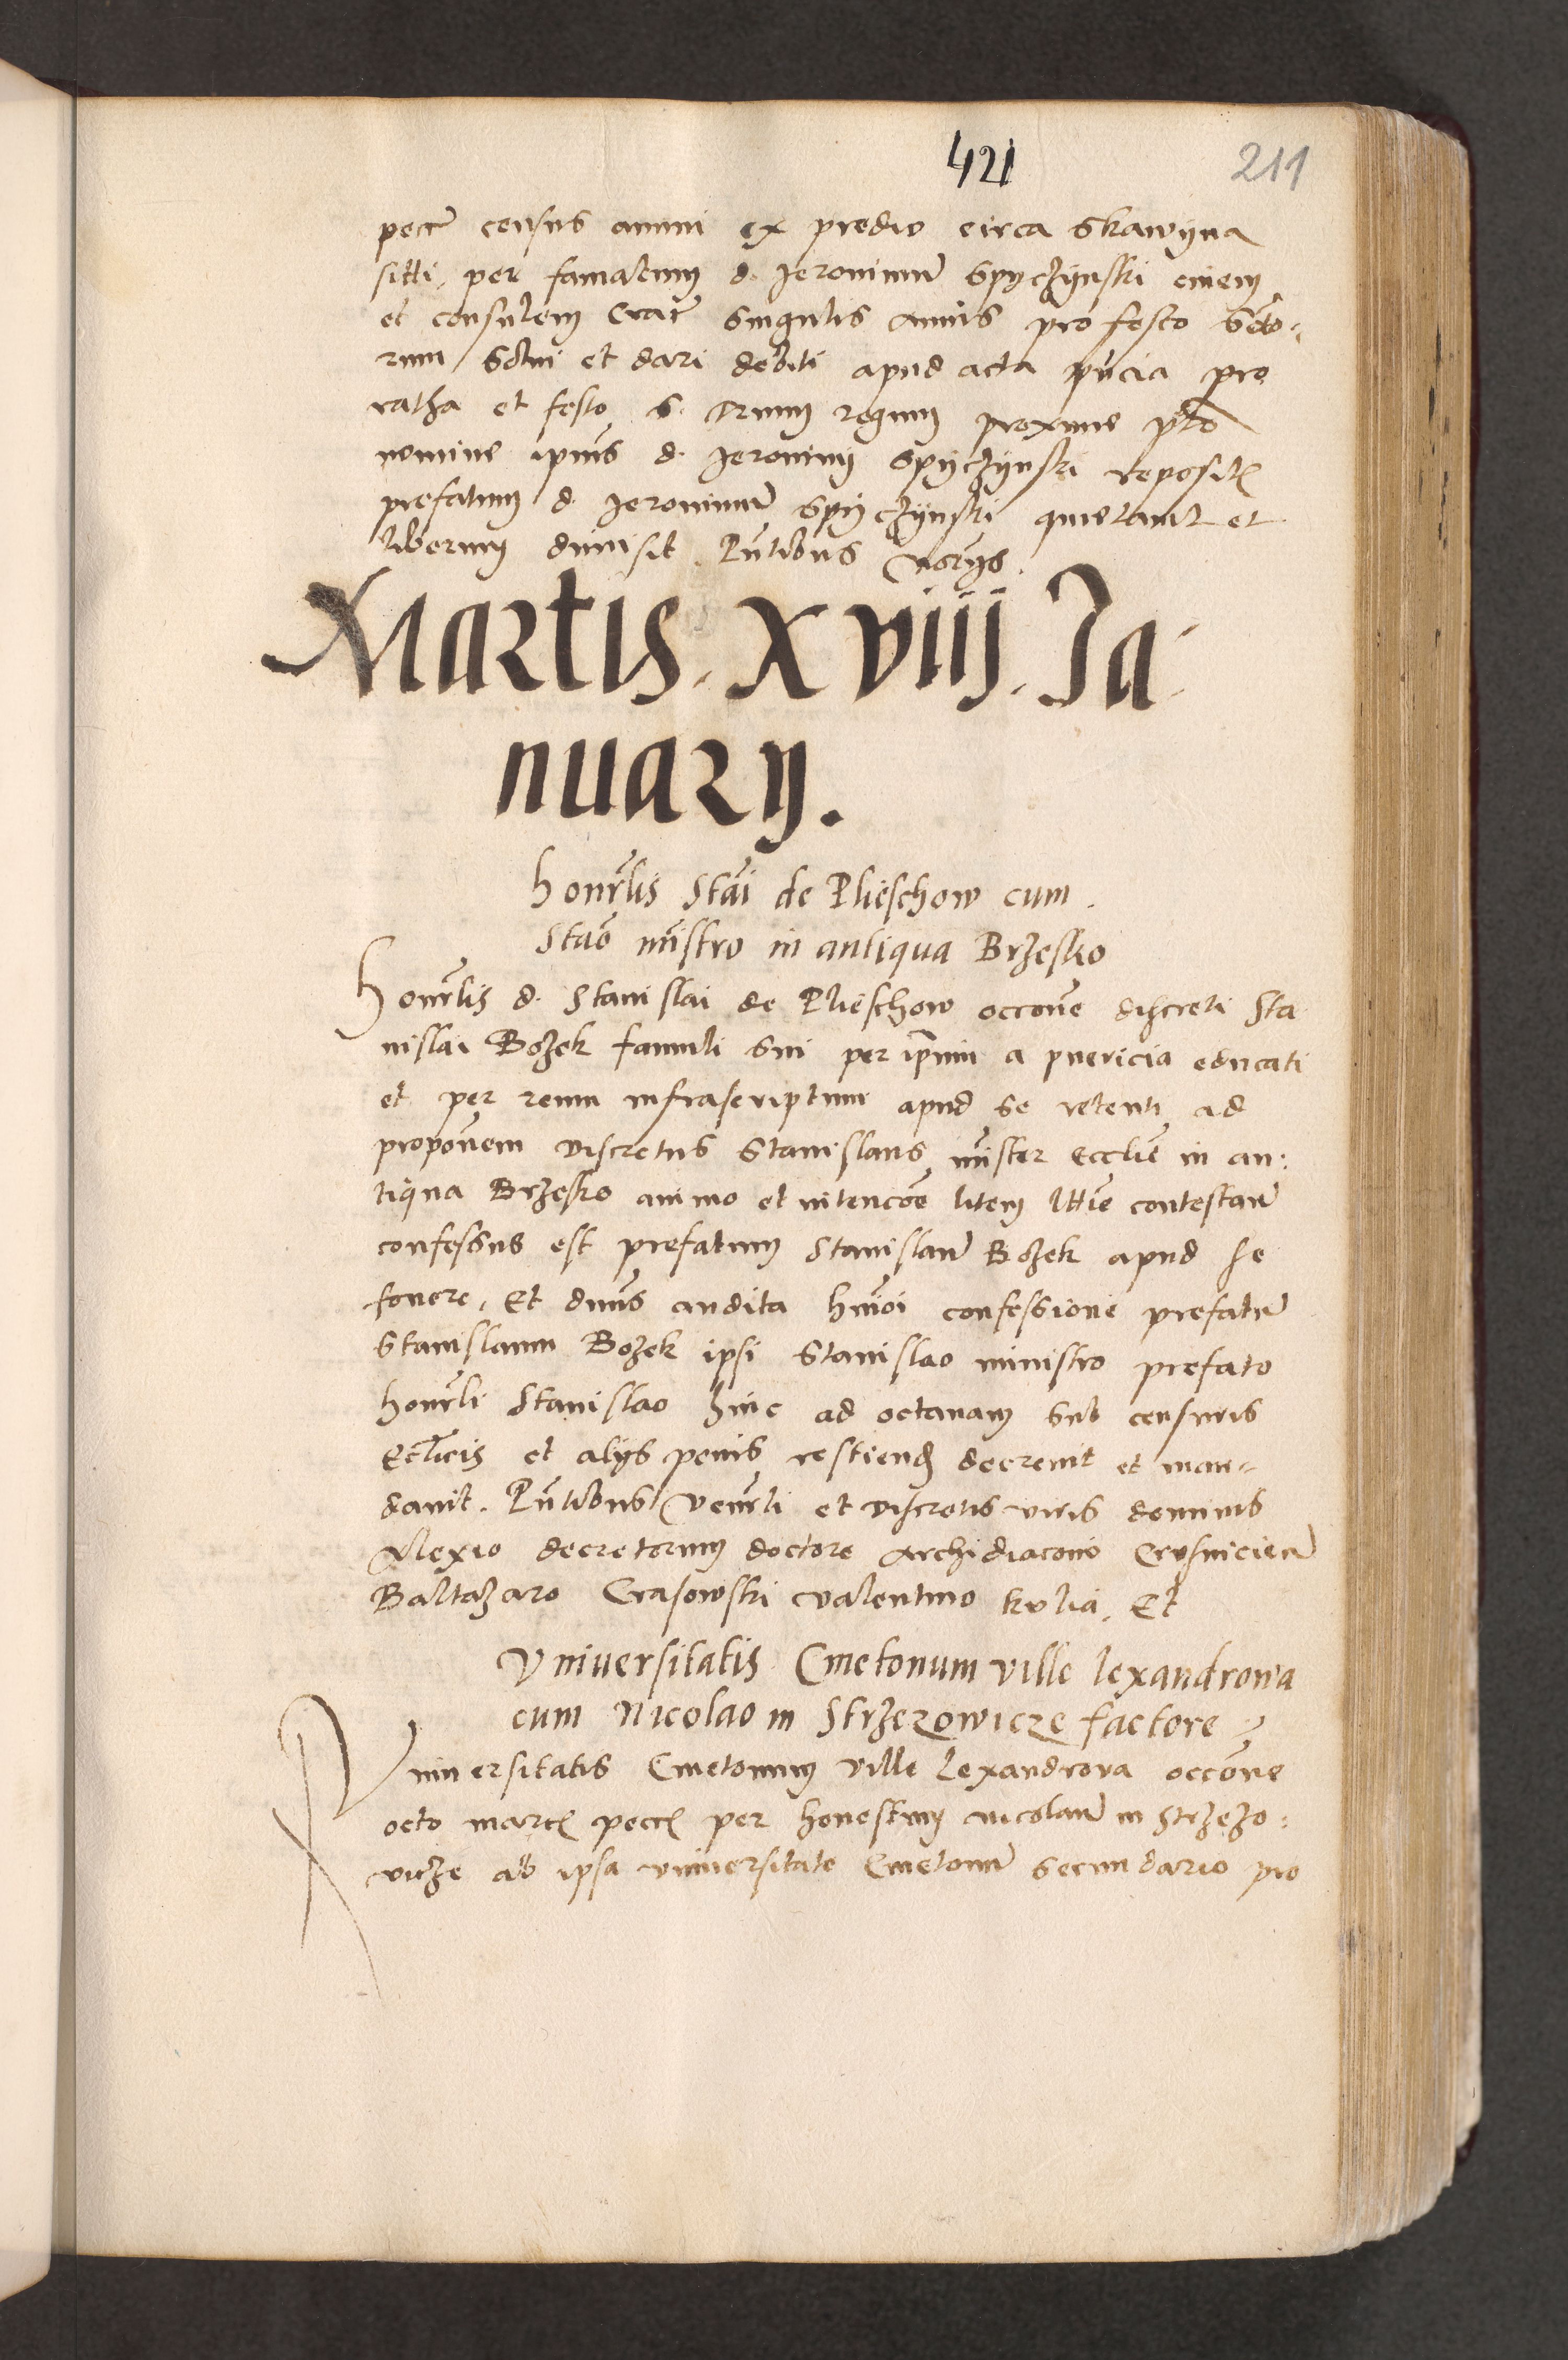 421 211
pecc̃ census annui ex predio circa Skawyna
sitti, per famatum d. Jeronimũ Spyczynski civem
et consulem Crac̃ singulis annis pro festo Sc̃to-
rum solui et dari debiti apud acta pñcia pro
ratha et festo S. Trium regum proxime pto
nomine ipius d. Jeronimi Spyczynski reposit
prefatum d. Jeronimũ Spyczynski quietauit et
liberum dimisit. Pñtibus
Martis. XVIII. Ja-
nuary.
Honrlis Stãi de Plieschow cum.
Stão mĩstro in antiqua Brzesko
Honrlis d. Stanislai de Plieschow occoñe discreti Sta
nislai Bozek famuli sui per ipm̃m a puericia educati
et per reum infrascriptum apud se retenti ad
propoñem discretus Stanislaus mĩster eccliẽ in an-
tiqua Brzesko animo et intencoẽ litem lttiẽ contestan̄
confessus est prefatum Stanislaũ Bozek apud se
fouere, Et dnus audita hm̃oi confessione prefatũ
Stanislaum Bozek ipsi Stanislao ministro prefato
honrli Stanislao hinc ad octauam sub censuris
Ecclicis et alijs penis restiend decreuit et man-
dauit. Pñtibus Venrli et discretis viris dominis
Alexio decretorum doctore Archidiacono
Baltazaro Crasowski Valentino Kulia, Et
Vniuersitatis Cmetonum ville lexandrowa
cum Nicolao in Strzezowicze factore
Vniuersitatis Cmetonum ville Lexandrova occoñe
octo marc pecc per honestum Nicolaũ in Strzezo-
vicze ab ipsa vniuersitate Cmetonũ secundario pro